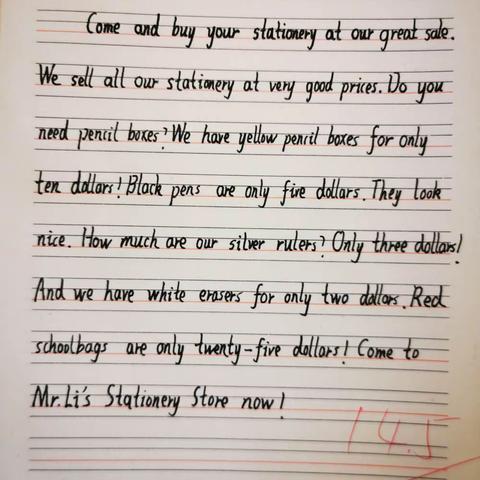 Come and buy your stationery at our great sale.
We sell all our stationery at very good prices. Do you
need pencil boxes? We have yellow pencil boxes for only
ten dollars! Black pens are only five dollars. They look
nice. How much are our silver rulers? Only three dollars!
And we have white erasers for only two dollars. Red
schoolbags are only twenty-five dollars! Come to
Mr. Li's Stationery Store now!
14.5